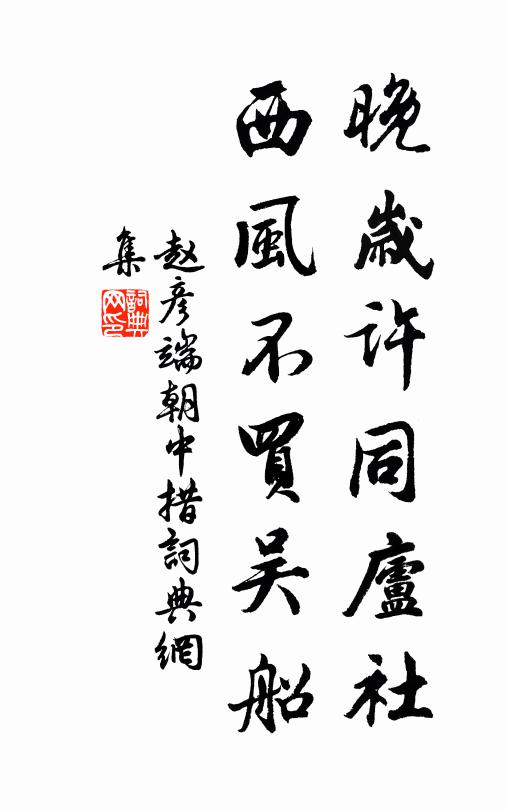 晚歲許同廬社
西風不買吴船
赵彥端朝中措詞典網
集
詞典
网印